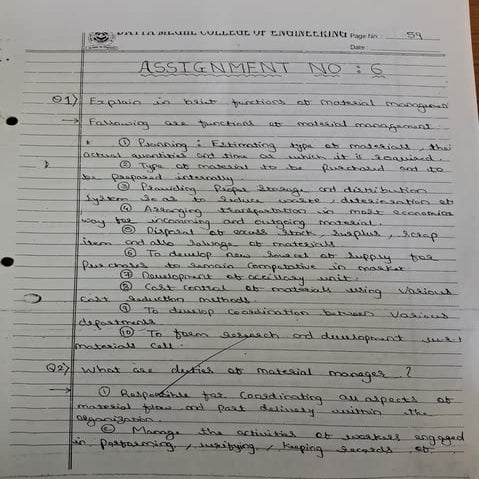 DATTA MEGHE COLLEGE OF ENGINEERING Page No. 59
Date
ASSIGNMENT NO : 6
Q1) Explain in brief functions of material managemen
→ Following are functions of material management.
① Planning : Estimating type of materials, thei
actual quantities and time at which it is required.
② Type of material to be purchased and to
be prepared internally.
③ Providing Proper storage and distribution
system so as to reduce waste, deterioration of
④ Arranging transportation in most economica
way for incoming and outgoing material.
⑤ Disposal of excess stock, surplus, scrap
item and also salvage of materials
⑥ To develop new source of supply for
Purchases to remain Competative in market
⑦ Development of accillary unit.
⑧ Cost control of materials using Various
cost reduction methods.
⑨ To develop coordination between Various
departments.
⑩ To form research and development
materials Cell.
Q2) What are duties of material manager ?
→ ① Responsible for Coordinating all aspects of
material flow and part delivery within the
organization.
② Manage the activities of workers engaged
in Performing, verifying, keeping records of